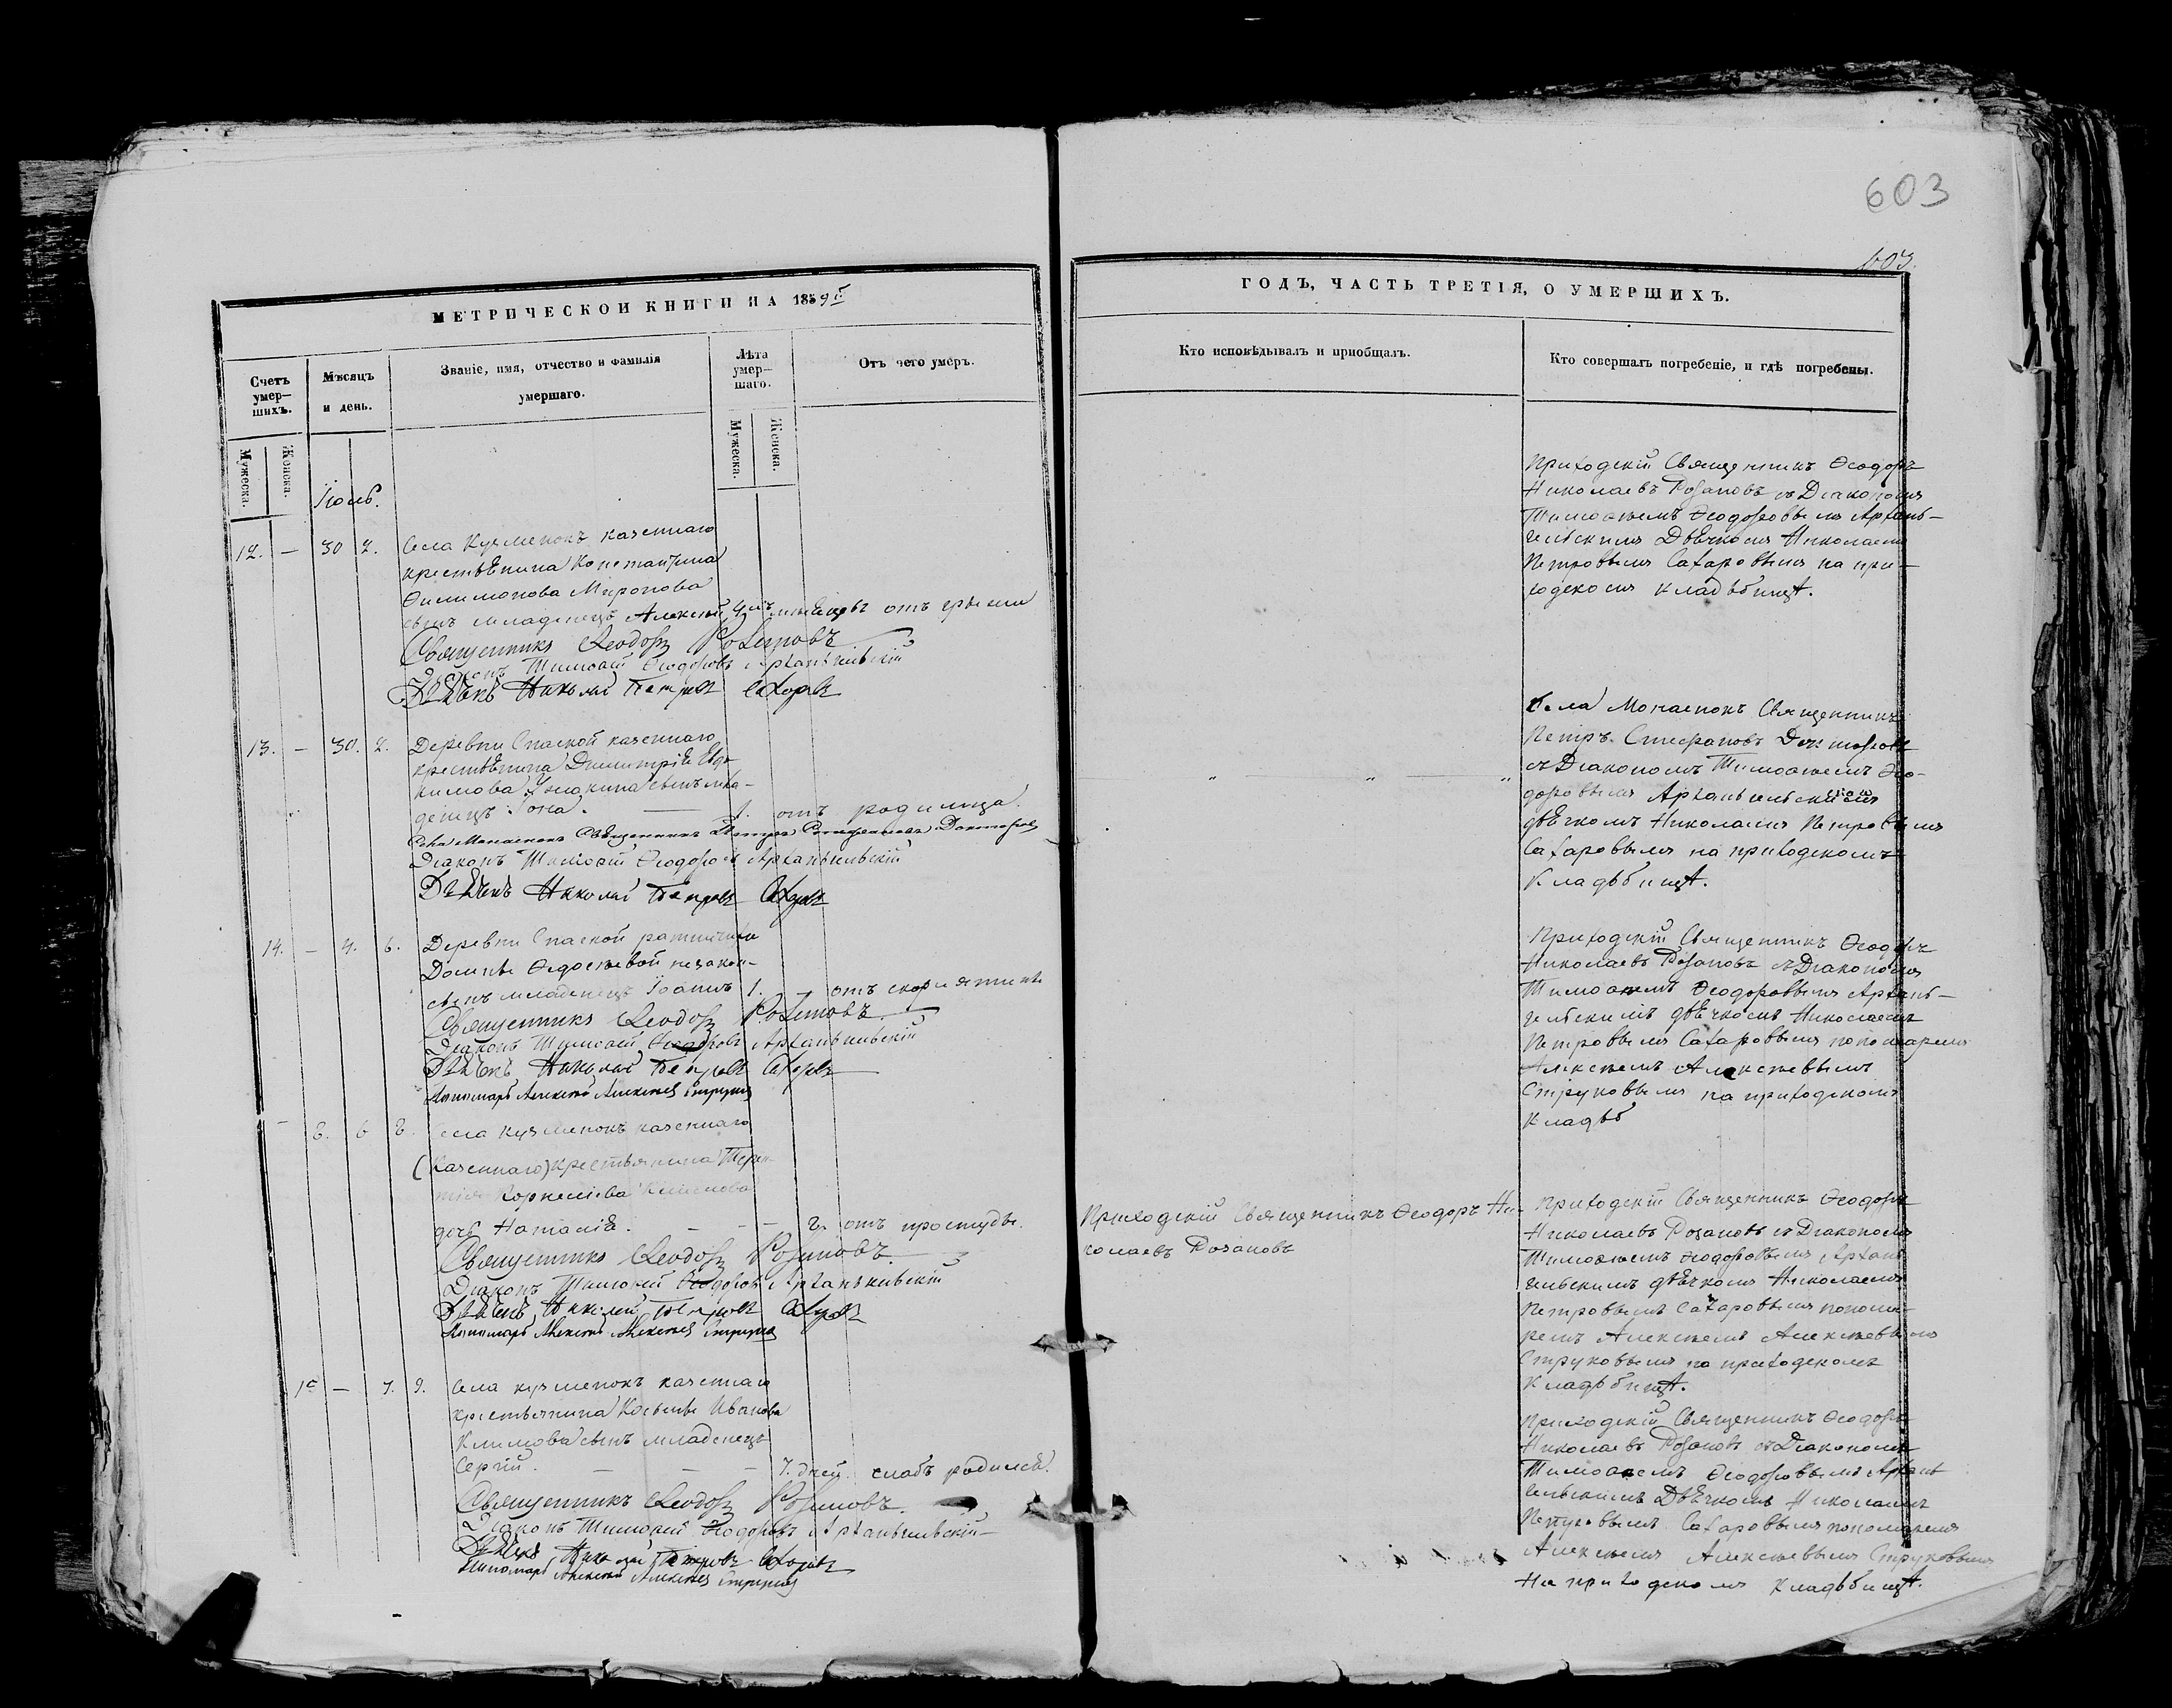 603
603.
МЕТРИЧЕСКОЙ КНИГИ НА 1859й
ГОДЪ, ЧАСТЬ ТРЕТІЯ, О УМЕРШИХЪ.
Счетъ умер-шихъ.
Мѣсяцъ и день.
Званіе, имя, отчество и фамилія
умершаго.
Лѣта умер-шаго.
Отъ чего умеръ.
Кто исповѣдывалъ и пріобщалъ.
Кто совершалъ погребеніе, и гдѣ погребены.
Мужеска.
Женска.
Мужеска.
Женска.
12. — 30 2. Села Кузменокъ казеннаго
крестьѣнина Константина
Филимонова Миронова
сынъ младенецъ Алексѣй
отъ грыжи
Священникъ Ѳеодоръ Розановъ
Діаконъ Тимоѳей Ѳеодоровъ Архангельскій
Дьячокъ Николай Петровъ Сахаровъ
Приходскій Священникъ Ѳеодоръ
Николаевъ Розановъ съ Діакономъ
Тимоѳеемъ Ѳеодоровымъ Архан-
гельскимъ Дьѣчкомъ Николаемъ
Петровымъ Сахаровымъ на при-
ходскомъ кладьбищѣ.
13. — 30. 2. Деревни Спаской казеннаго
крестьѣнина Димитріѣ Евдо-
кимова сынъ мла-
денецъ Іона. — 1. отъ родимца.
Села Монаенокъ Священникъ Петръ Докторовъ
Діаконъ Тимоѳей Ѳеодоровъ Архангельскій
Дьячокъ Николай Петровъ Сахаровъ
Села Монаенокъ Священникъ
Петръ Стефановъ Докторовъ
съ Діакономъ Тимоѳеемъ Ѳео-
доровымъ Архангельскимъ
дьѣчкомъ Николаемъ Петровымъ
Сахаровымъ на приходскомъ
Кладьбищѣ.
14. — 4. 6. Деревни Спаской
Домны Ѳедосѣевой незакон-
сынъ младенецъ Іоаннъ 1. — отъ
Священникъ Ѳеодоръ Розановъ
Діаконъ Тимоѳей Ѳеодоровъ Архангельскій
Дьячокъ Николай Петровъ Сахаровъ
Пономарь Алексѣй Алексѣевъ Струковъ
Приходскій Священникъ Ѳеодоръ
Николаевъ Розановъ съ Діакономъ
Тимоѳеемъ Ѳеодоровымъ Архан-
гельскимъ дьѣчкомъ Николаемъ
Петровымъ Сахаровымъ пономаремъ
Алексѣемъ Алексѣевымъ
Струковымъ на приходскомъ
Кладьб
— 8. 6 8. Села Кузменокъ казеннаго
(Казеннаго) крестьянина Терен-
тія Корнеліева Климова
дочь Наталіѣ. — — — 2. отъ простуды.
Священникъ Ѳеодоръ Розановъ
Діаконъ Тимоѳей Ѳеодоровъ Архангельскій
Дьячокъ Николай Петровъ Сахаровъ
Пономарь Алексѣй Алексѣевъ Струковъ
Приходскій Священникъ Ѳеодоръ Ни-
колаевъ Розановъ
Приходскій Священникъ Ѳеодоръ
Николаевъ Розановъ съ Діакономъ
Тимоѳеемъ Ѳеодоровымъ Архан-
гельскимъ дьѣчкомъ Николаемъ
Петровымъ Сахаровымъ понома-
ремъ Алексѣемъ Алексѣевымъ
Струковымъ на приходскомъ
Кладьбищѣ.
— 7. 9. Села Кузменокъ казеннаго
крестьянина Косьмы Иванова
Климова сынъ младенецъ
Сергій. — — — 7. дней. слабъ родился.
Священникъ Ѳеодоръ Розановъ.
Діаконъ Тимоѳей Ѳеодоровъ Архангельскій
Дьячокъ Николай Петровъ Сахаровъ
Пономарь Алексѣй Алексѣевъ Струковъ
Приходскій Священникъ Ѳеодоръ
Николаевъ Розановъ съ Діакономъ
Тимоѳеемъ Ѳеодоровымъ Архан
гельскимъ Дьѣчкомъ Николаемъ
Петровымъ Сахаровымъ пономаремъ
Алексѣемъ Алексѣевымъ Струковымъ
На приходскомъ кладьбищѣ.